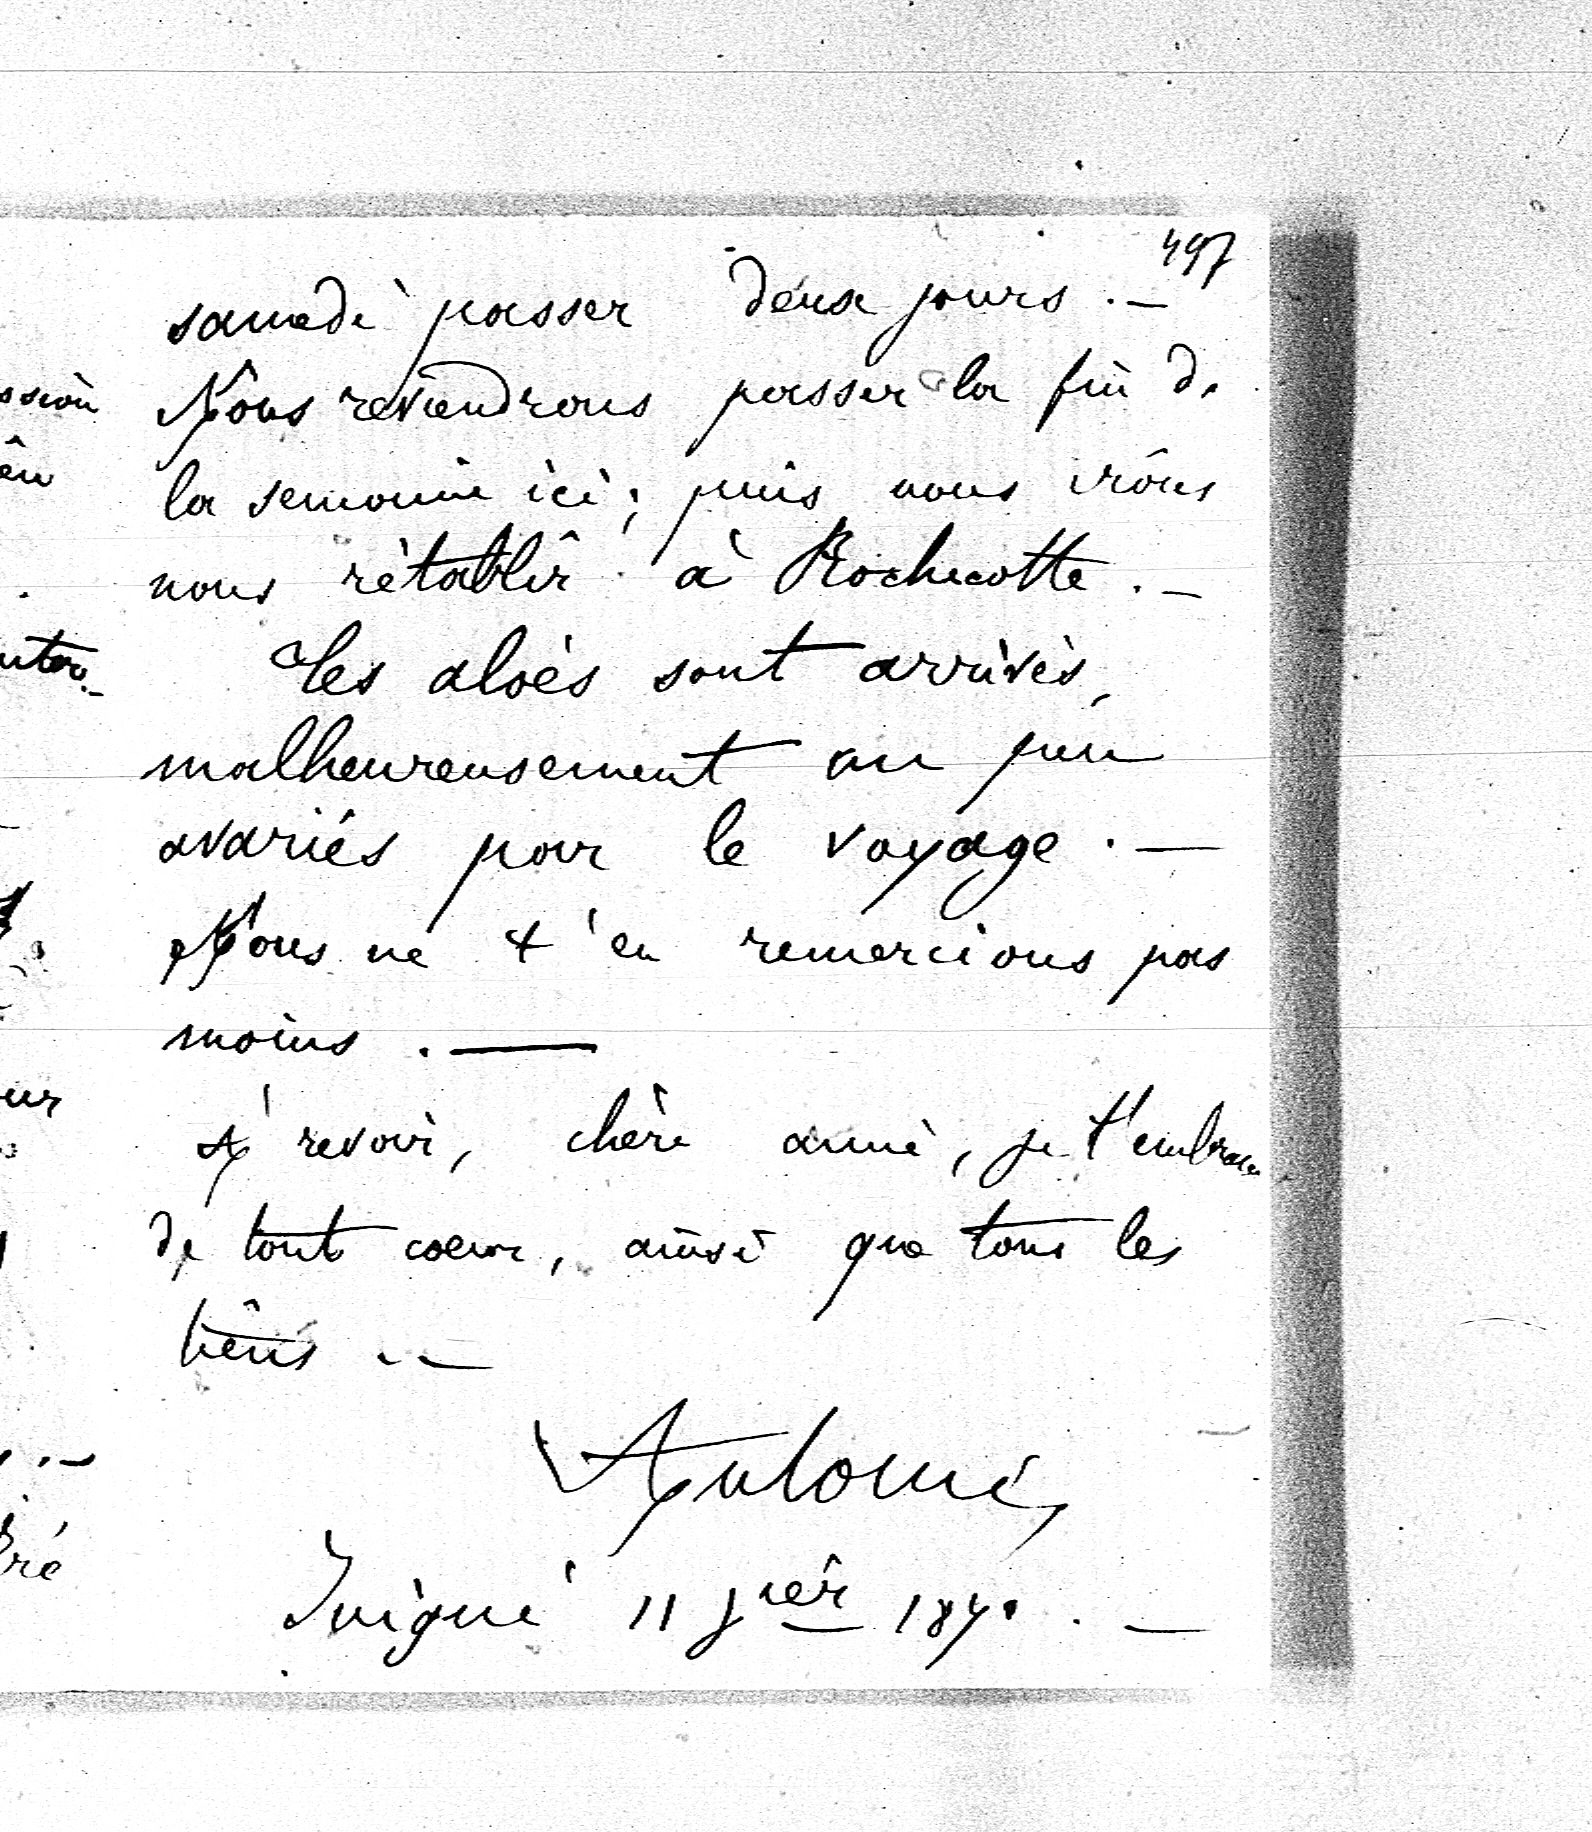 497
samedi passer deux jours . —
Nous reviendrons passer la fin de
la semaine ici ; puis nous irons
nous rétablir à Rochecotte . —
Les aloès sont arrivés,
malheureusement un peu
avariés par le voyage . —
Nous ne t'en remercions pas
moins . —
A' revoir, chère amie, je t'embrasse
de tout coeur, ainsi que tous les
tiens . —
Antoine
Juigné 11 Jer 1870 . —
ssion
ur
ré